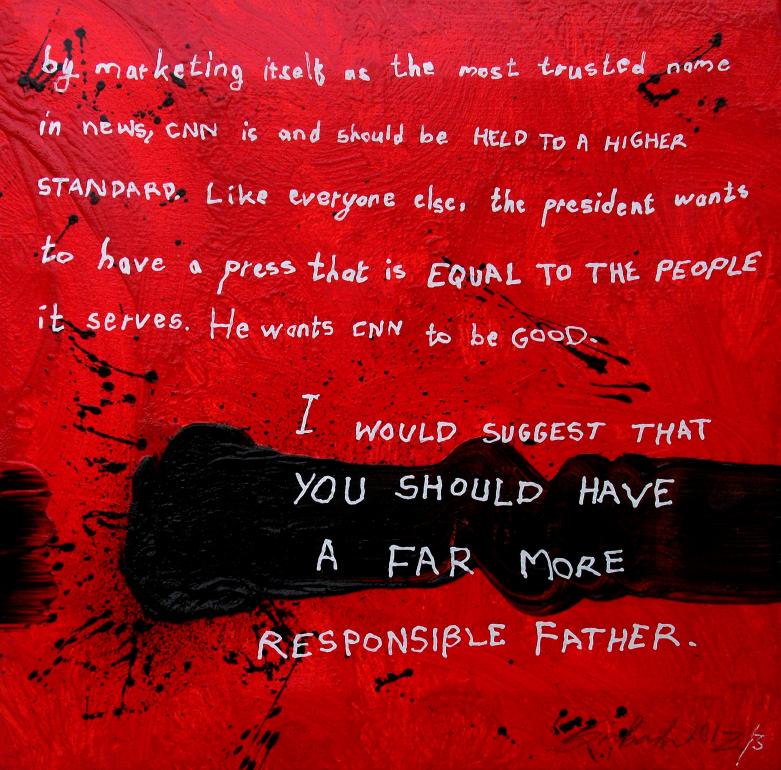 by marketing itself as the most trusted name
in news, CNN is and should be HELD TO A HIGHER
STANDARD. Like everyone else, the president wants
to have a press that is EQUAL TO THE PEOPLE
it serves. He wants CNN to be GOOD.
I WOULD SUGGEST THAT
YOU SHOULD HAVE
A FAR MORE
RESPONSIBLE FATHER.